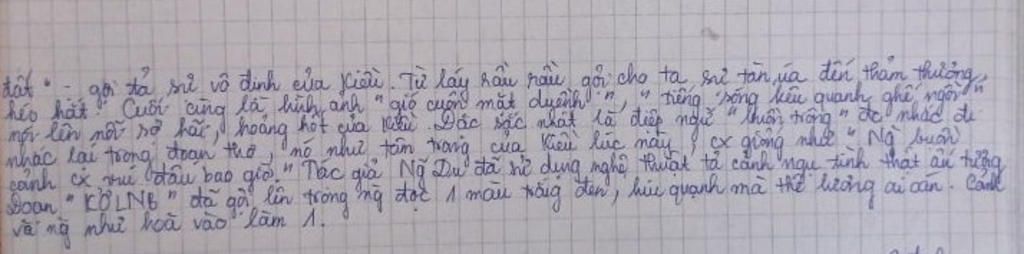 đất" - gợi tả sự vô định của Kiều. Từ láy rầu rầu gợi cho ta sự tàn úa đến thảm thương,
héo hắt. Cuối cùng là hình ảnh "gió cuốn mặt duyềnh", "tiếng sóng kêu quanh ghế ngồi"
nói lên nỗi sợ hãi, hoảng hốt của Kiều. Đặc sắc nhất là điệp ngữ "buồn trông" đc nhắc đi
nhắc lại trong đoạn thơ, nó như tâm trạng của Kiều lúc này, cx giống như "Ng buồn
cảnh cx vui đâu bao giờ". Tác giả Ng Du đã sử dụng nghệ thuật tả cảnh ngụ tình thật ấn tượng
Đoạn "KOLNB" đã gợi lên trong ng đọc 1 màu trắng đen, hiu quạnh mà thê lương ai oán. Cảnh
và ng như hoà vào làm 1.